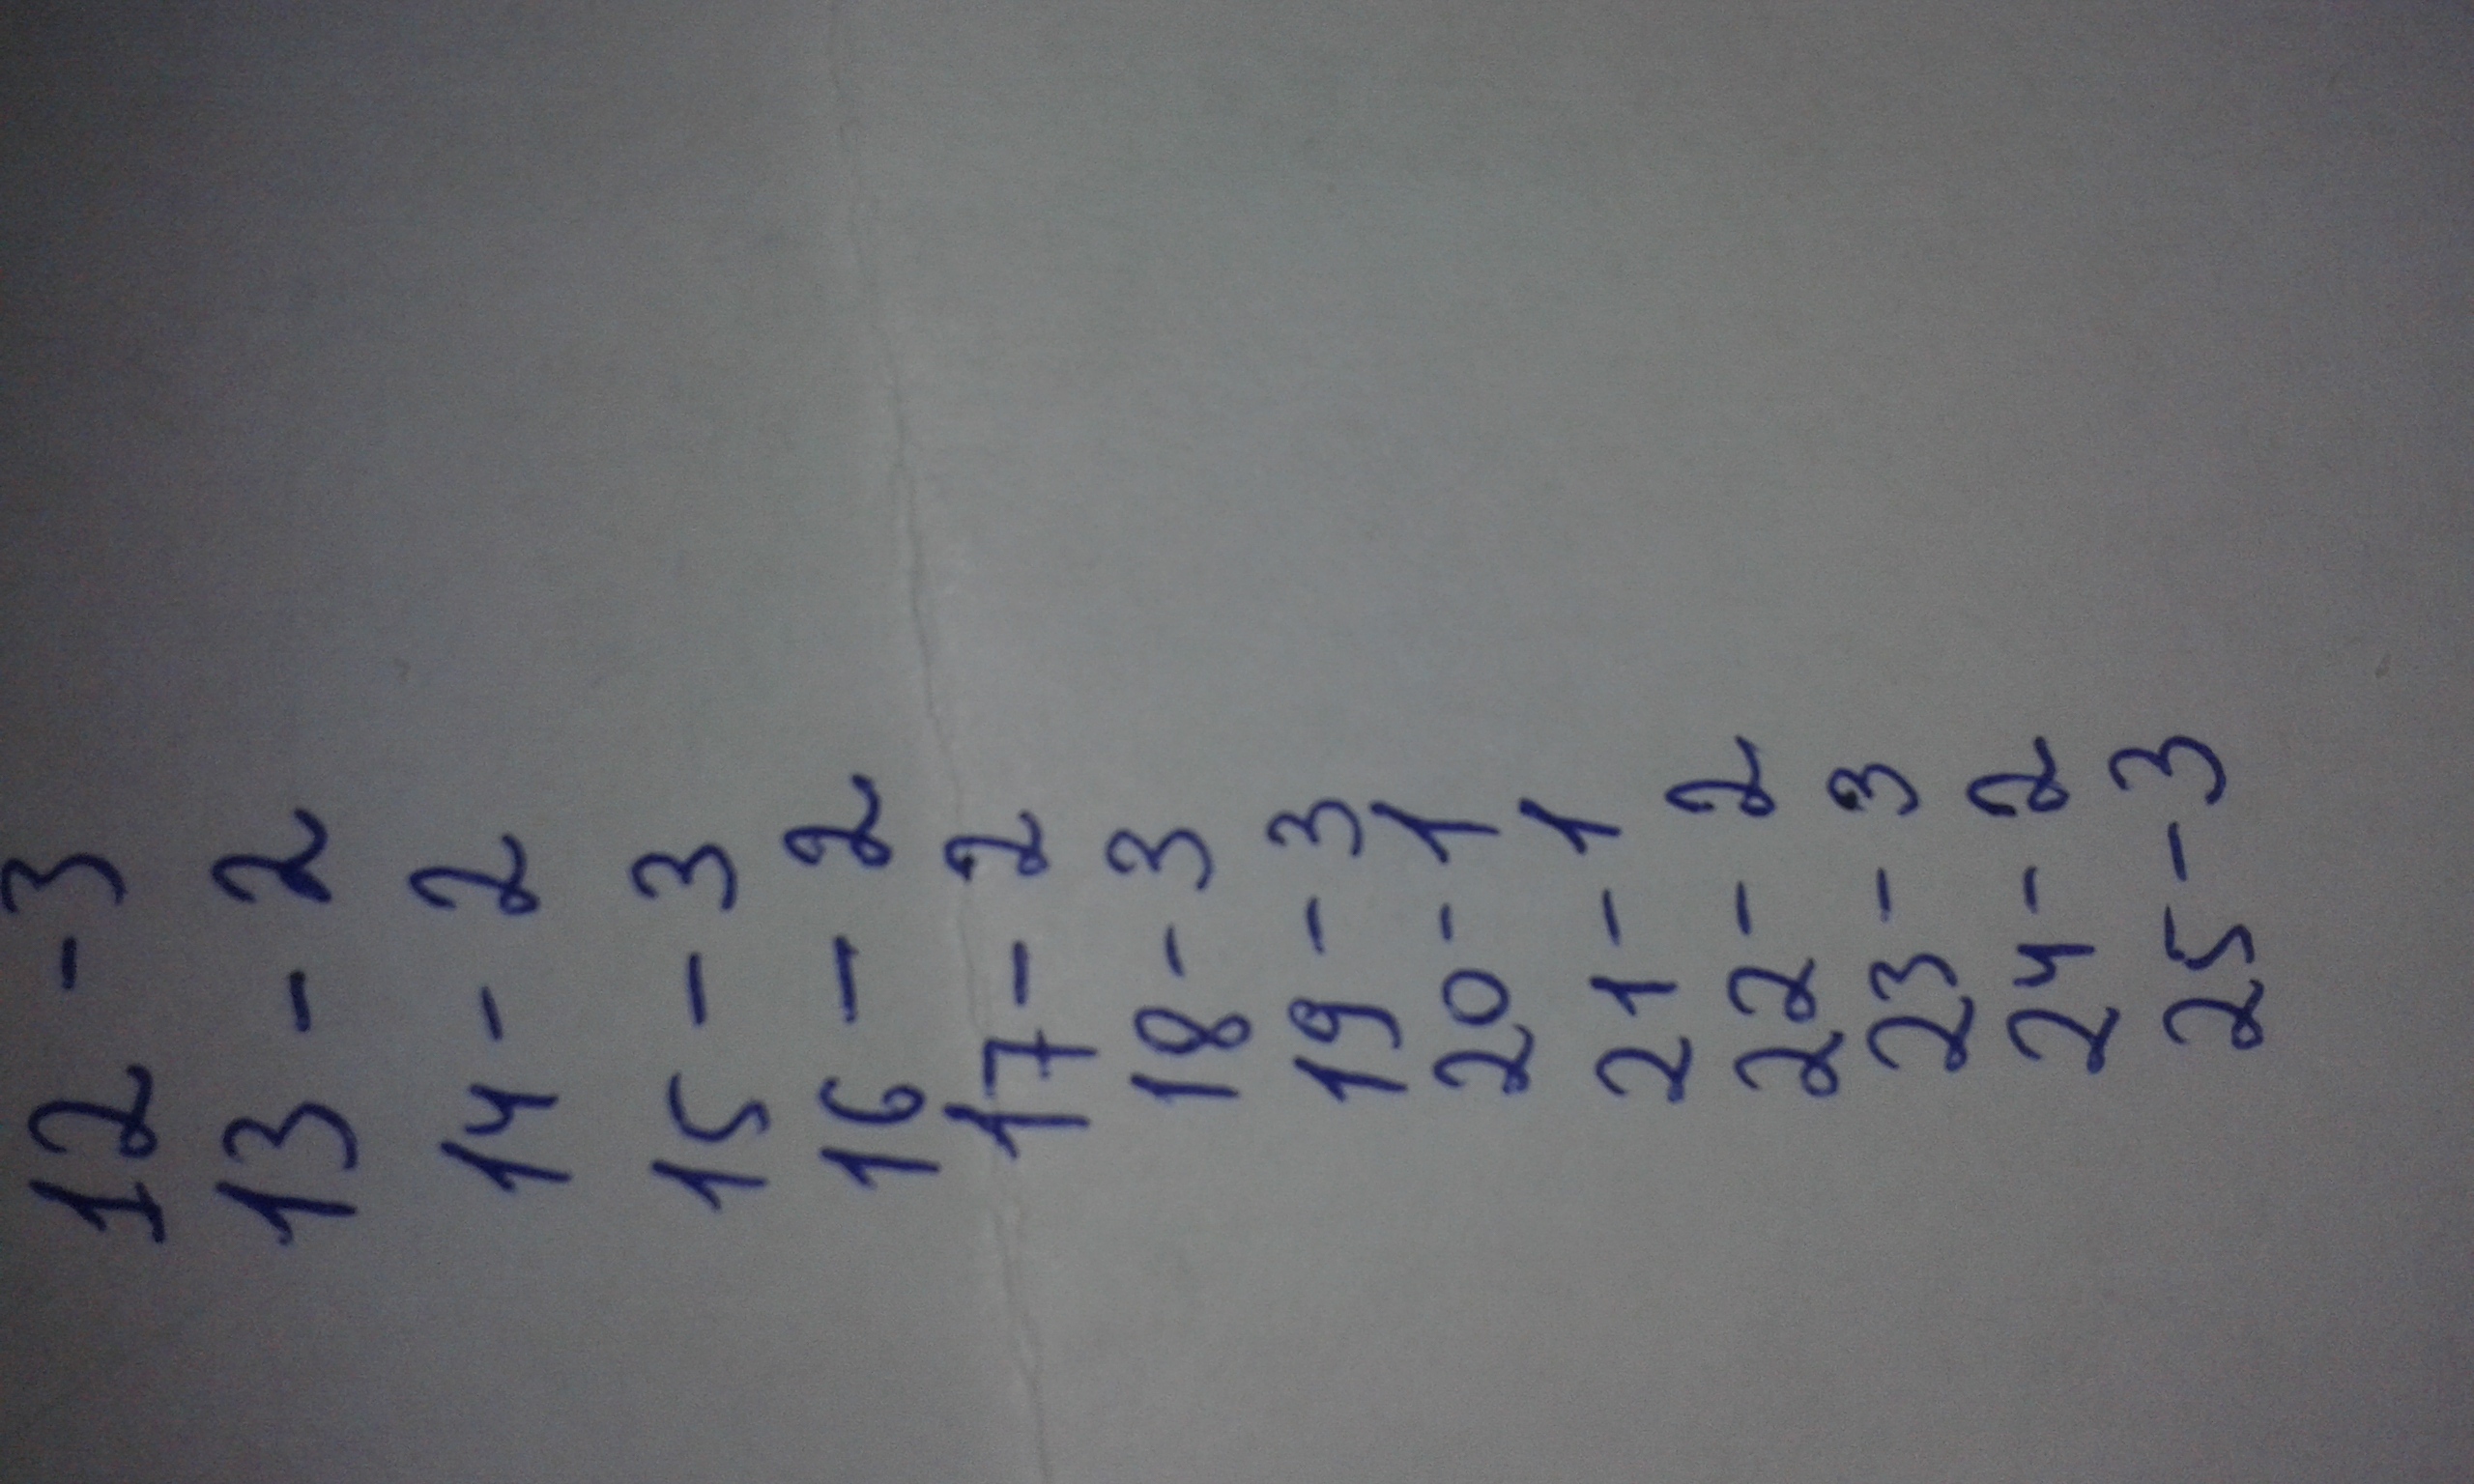 12 - 3
13 - 2
14 - 2
15 - 3
16 - 2
17 - 2
18 - 3
19 - 3
20 - 1
21 - 1
22 - 2
23 - 3
24 - 2
25 - 3